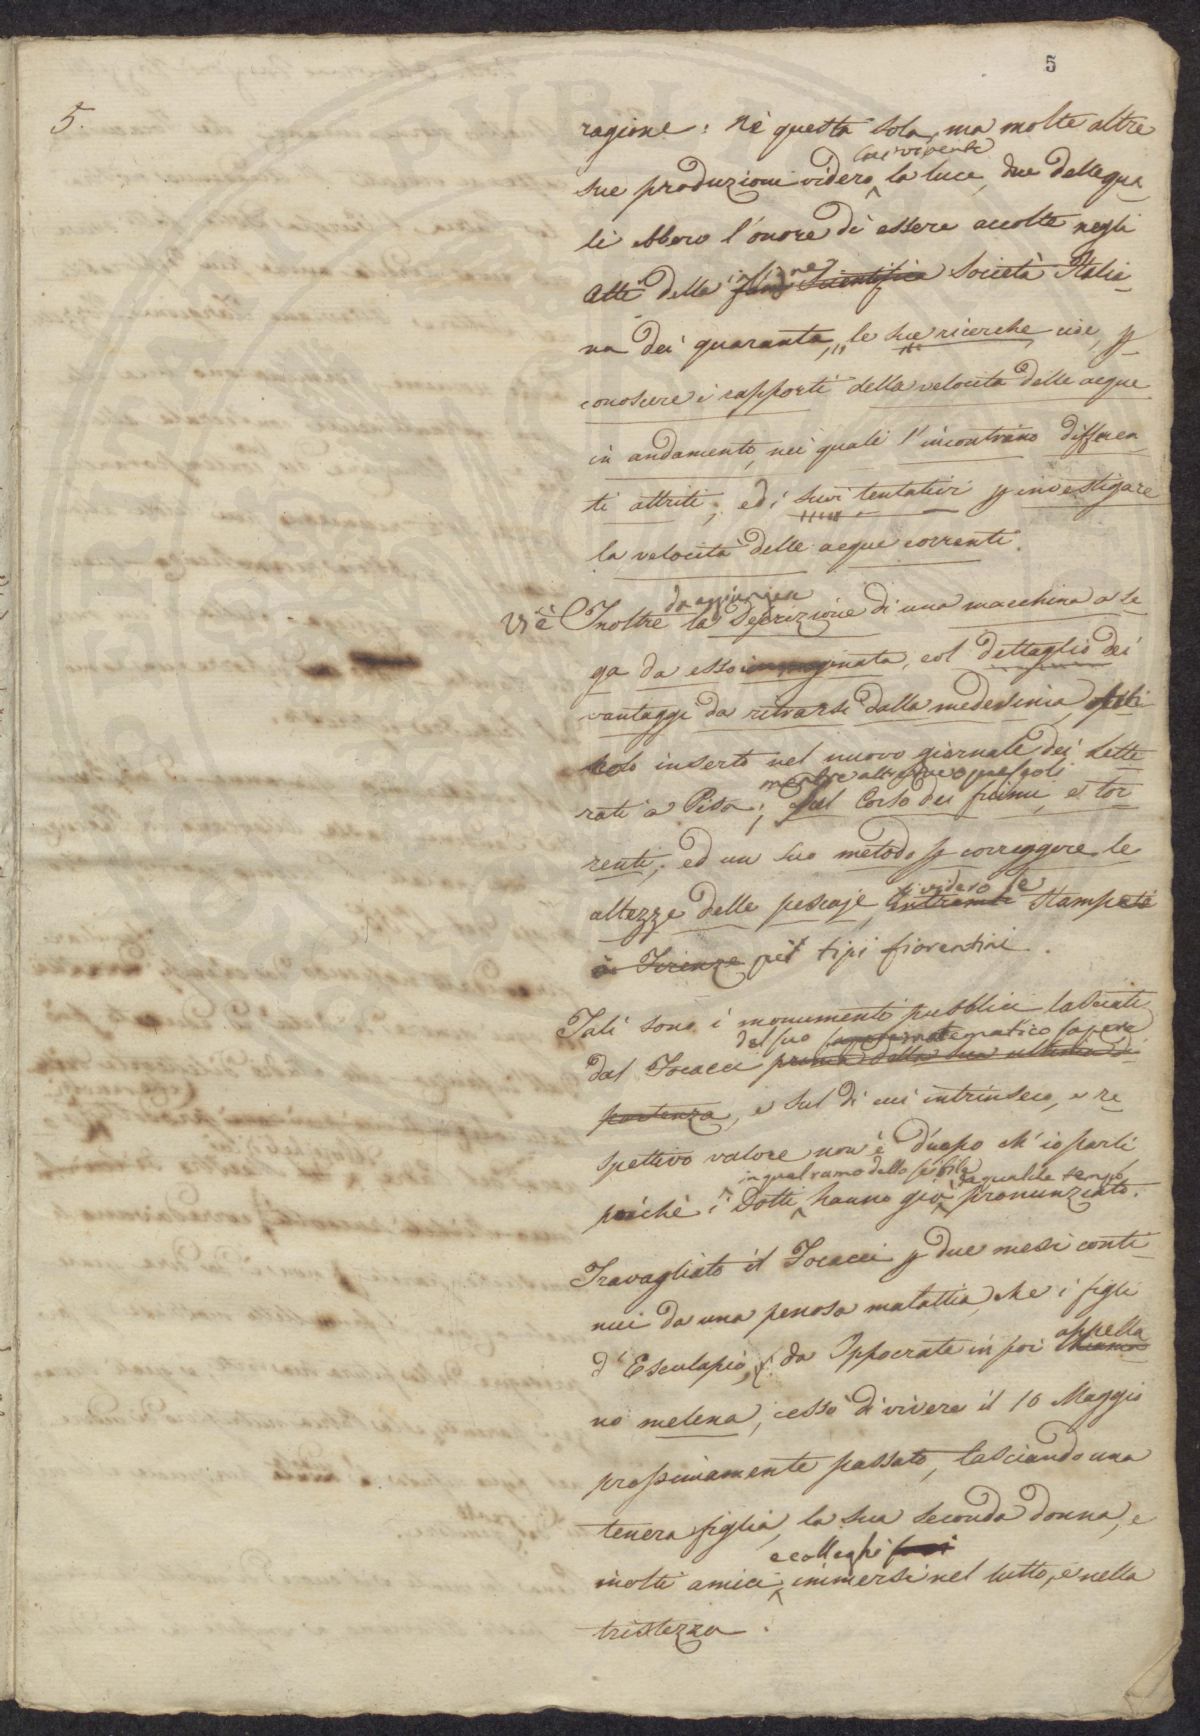 5
5.
ragione: Nè questa sola, ma molte altre
lui vivente
sue produzioni videro la luce, due delle qua
li ebbero l'onore di essere accolte negli
insigne
Atti della Scientifica Società Italia
na dei quaranta, le sue ricerche cioè, p
conoscere i rapporti della velocità delle acque
in andamento, nei quali s'incontrano differen
ti attriti; ed i suoi tentativi p investigare
la velocità delle acque correnti.
da aggiungere
V'è Inoltre la Descrizione di una macchina a se
ga da esso immaginata, col dettaglio dei
vantaggi da ritrarsi dalla medesima,
inserto nel nuovo giornale dei Lette
mentre altri due opuscoli
rati a Pisa; sul Corso dei fiumi, e tor
renti, ed un suo metodo p correggere le
videro
altezze delle pescaje, entrambi stampati
a Firenze pei tipi fiorentini.
Tali sono i monumenti pubblici lasciati
del suo matematico sapere
dal Focacci prima della sua ultima di
partenza, e sul di cui intrinseco, e re
spettivo valore non è d'uopo ch'io parli,
in quel ramo dello scibile da qualche tempo
poichè i Dotti hanno già pronunziato.
Travagliato il Focacci p due mesi conti
nui da una penosa malattia, che i figli
appella
d'Esculapio, da Ippocrate in poi chiama
no melena, cessò di vivere il 10 Maggio
prossimamente passato, lasciando una
tenera figlia, la sua seconda donna, e
e colleghi
molti amici immersi nel lutto, e nella
tristezza.